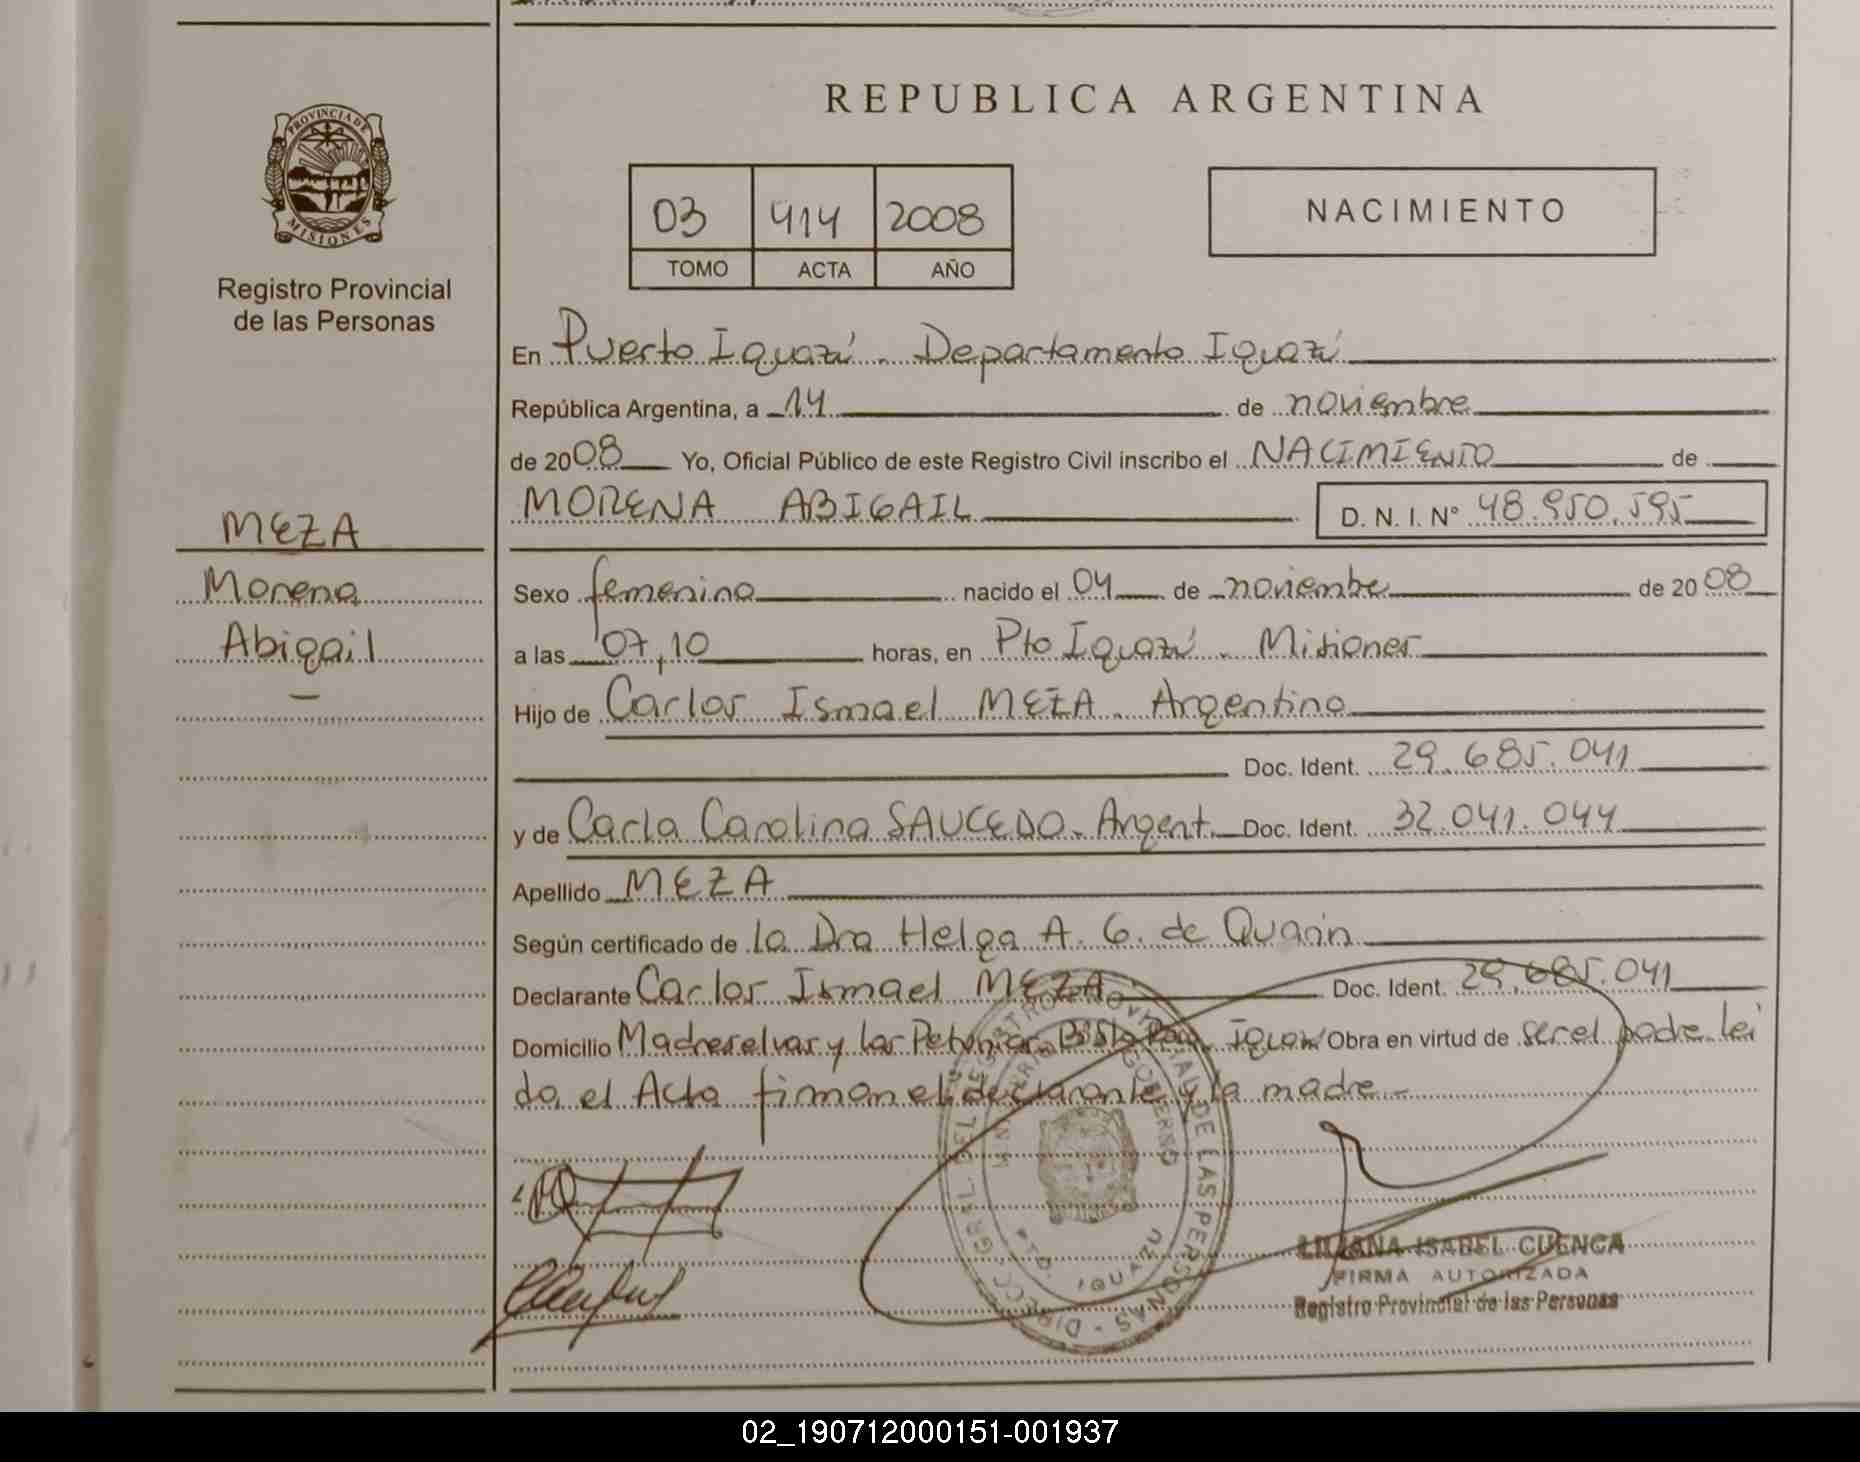 REPUBLICA ARGENTINA
PROVINCIA DE
MISIONES
Registro Provincial
de las Personas
03 414 2008
TOMO ACTA AÑO
NACIMIENTO
En Puerto Iguazú - Departamento Iguazú
República Argentina, a 14 de noviembre
de 2008 Yo, Oficial Público de este Registro Civil inscribo el NACIMIENTO de
MORENA ABIGAIL D. N. I. N° 48.950.595
MEZA
Morena
Abigail
Sexo femenino nacido el 04 de noviembe de 2008
a las 07,10 horas, en Pto Iguazú - Misiones
Hijo de Carlos Ismael MEZA - Argentino
Doc. Ident. 29.685.041
y de Carla Carolina SAUCEDO - Argent. Doc. Ident. 32.041.044
Apellido MEZA
Según certificado de la Dra Helga A. G. de
Declarante Carlos Ismael MEZA Doc. Ident. 29.685.041
Domicilio Madreselvas y las Iguazú Obra en virtud de ser el padre. Lei
da el Acta firman el declarante y la madre -
LILIANA ISABEL CUENCA
FIRMA AUTORIZADA
Registro Provincial de las Personas
02_190712000151-001937